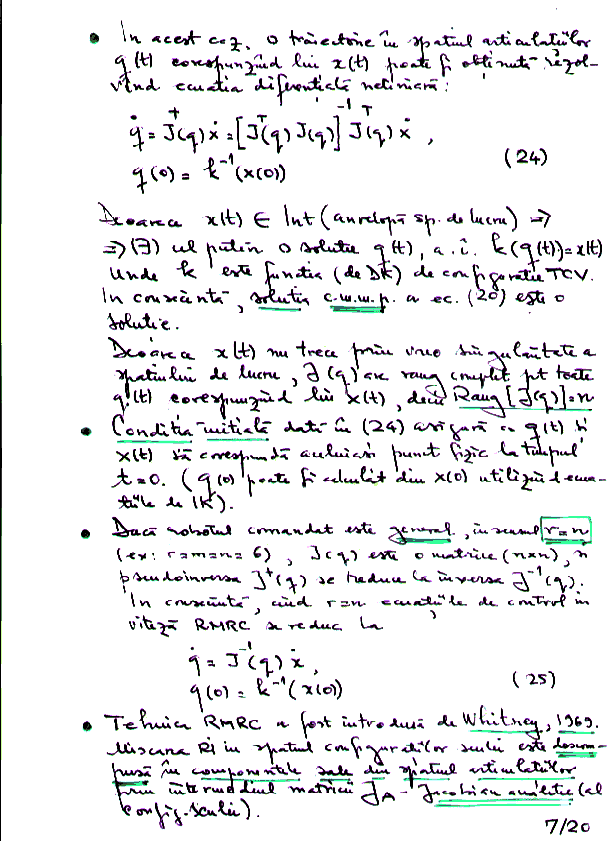 • In acest caz, o traiectorie în spațiul articulațiilor
q(t) corespunzînd lui x(t) poate fi obținută rezol-
vînd ecuația diferențială neliniară:
q̇ = J⁺(q) ẋ = [Jᵀ(q) J(q)]⁻¹ Jᵀ(q) ẋ ,
(24)
q(0) = k⁻¹(x(0))
Deoarece x(t) ∈ Int (anvelopă sp. de lucru) ⇒
⇒ (∃) cel puțin o soluție q(t), a.î. k(q(t)) = x(t)
unde k este funcția (de DK) de configurație TCV.
In consecință, soluția c.m.m.p. a ec. (20) este o
soluție.
Deoarece x(t) nu trece prin vreo singularitate a
spațiului de lucru, J(q) are rang complet pt toate
q(t) corespunzînd lui x(t), deci Rang[J(q)]=n
• Condiția inițială dată în (24) asigură ca q(t) și
x(t) să corespundă aceluiași punct fizic la timpul
t=0. (q(0) poate fi calculat din x(0) utilizînd ecua-
țiile de IK).
• Dacă robotul comandat este general, în sensul r=n
(ex: r=m=n=6), J(q) este o matrice (n×n), și
pseudoinversa J⁺(q) se reduce la inversa J⁻¹(q).
In consecință, cînd r=n ecuațiile de control in
viteză RMRC se reduc la
q̇ = J⁻¹(q) ẋ ,
(25)
q(0) = k⁻¹(x(0))
• Tehnica RMRC a fost introdusă de Whitney, 1969.
Mișcarea RI in spațiul configurațiilor sculei este descom-
pusă în componentele sale din spațiul articulațiilor
prin intermediul matricii J_A - Jacobian analitic (al
config. sculei).
7/20